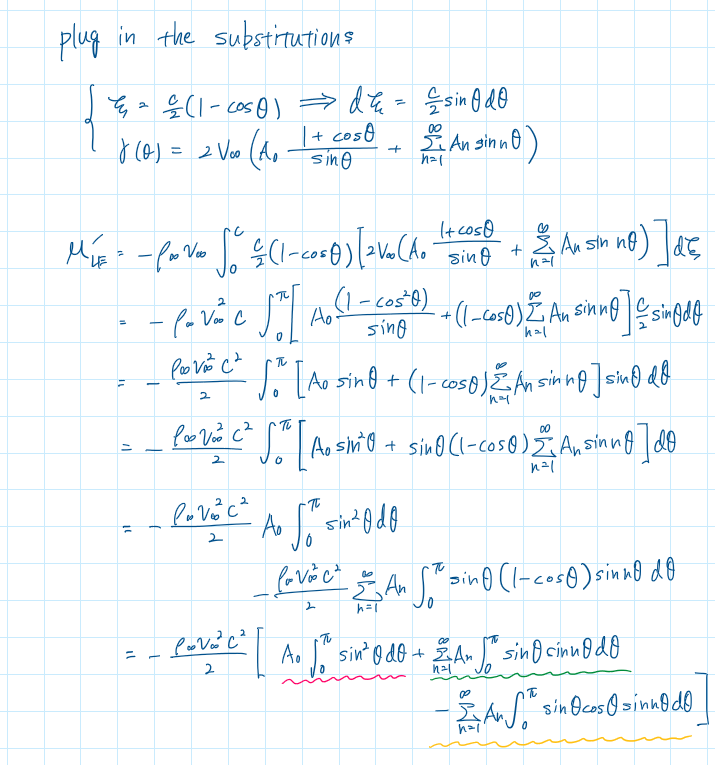 plug in the substitutions
{ ξ = c/2 (1 - cosθ) ⟹ dξ = c/2 sinθ dθ
γ(θ) = 2V∞ (A₀ (1 + cosθ)/sinθ + ∑_{n=1}^{∞} An sin nθ)
M'_LE = -ρ∞ V∞ ∫₀^c c/2 (1-cosθ) [2V∞ (A₀ (1+cosθ)/sinθ + ∑_{n=1}^{∞} An sin nθ)] dξ
= -ρ∞ V∞² c ∫₀^π [A₀ (1 - cos²θ)/sinθ + (1-cosθ) ∑_{n=1}^{∞} An sin nθ] c/2 sinθ dθ
= - ρ∞V∞²c²/2 ∫₀^π [A₀ sinθ + (1-cosθ) ∑_{n=1}^{∞} An sin nθ] sinθ dθ
= - ρ∞V∞²c²/2 ∫₀^π [A₀ sin²θ + sinθ (1-cosθ) ∑_{n=1}^{∞} An sin nθ] dθ
= - ρ∞V∞²c²/2 A₀ ∫₀^π sin²θ dθ
- ρ∞V∞²c²/2 ∑_{n=1}^{∞} An ∫₀^π sinθ (1-cosθ) sin nθ dθ
= - ρ∞V∞²c²/2 [ A₀ ∫₀^π sin²θ dθ + ∑_{n=1}^{∞} An ∫₀^π sinθ sin nθ dθ
- ∑_{n=1}^{∞} An ∫₀^π sinθ cosθ sin nθ dθ ]